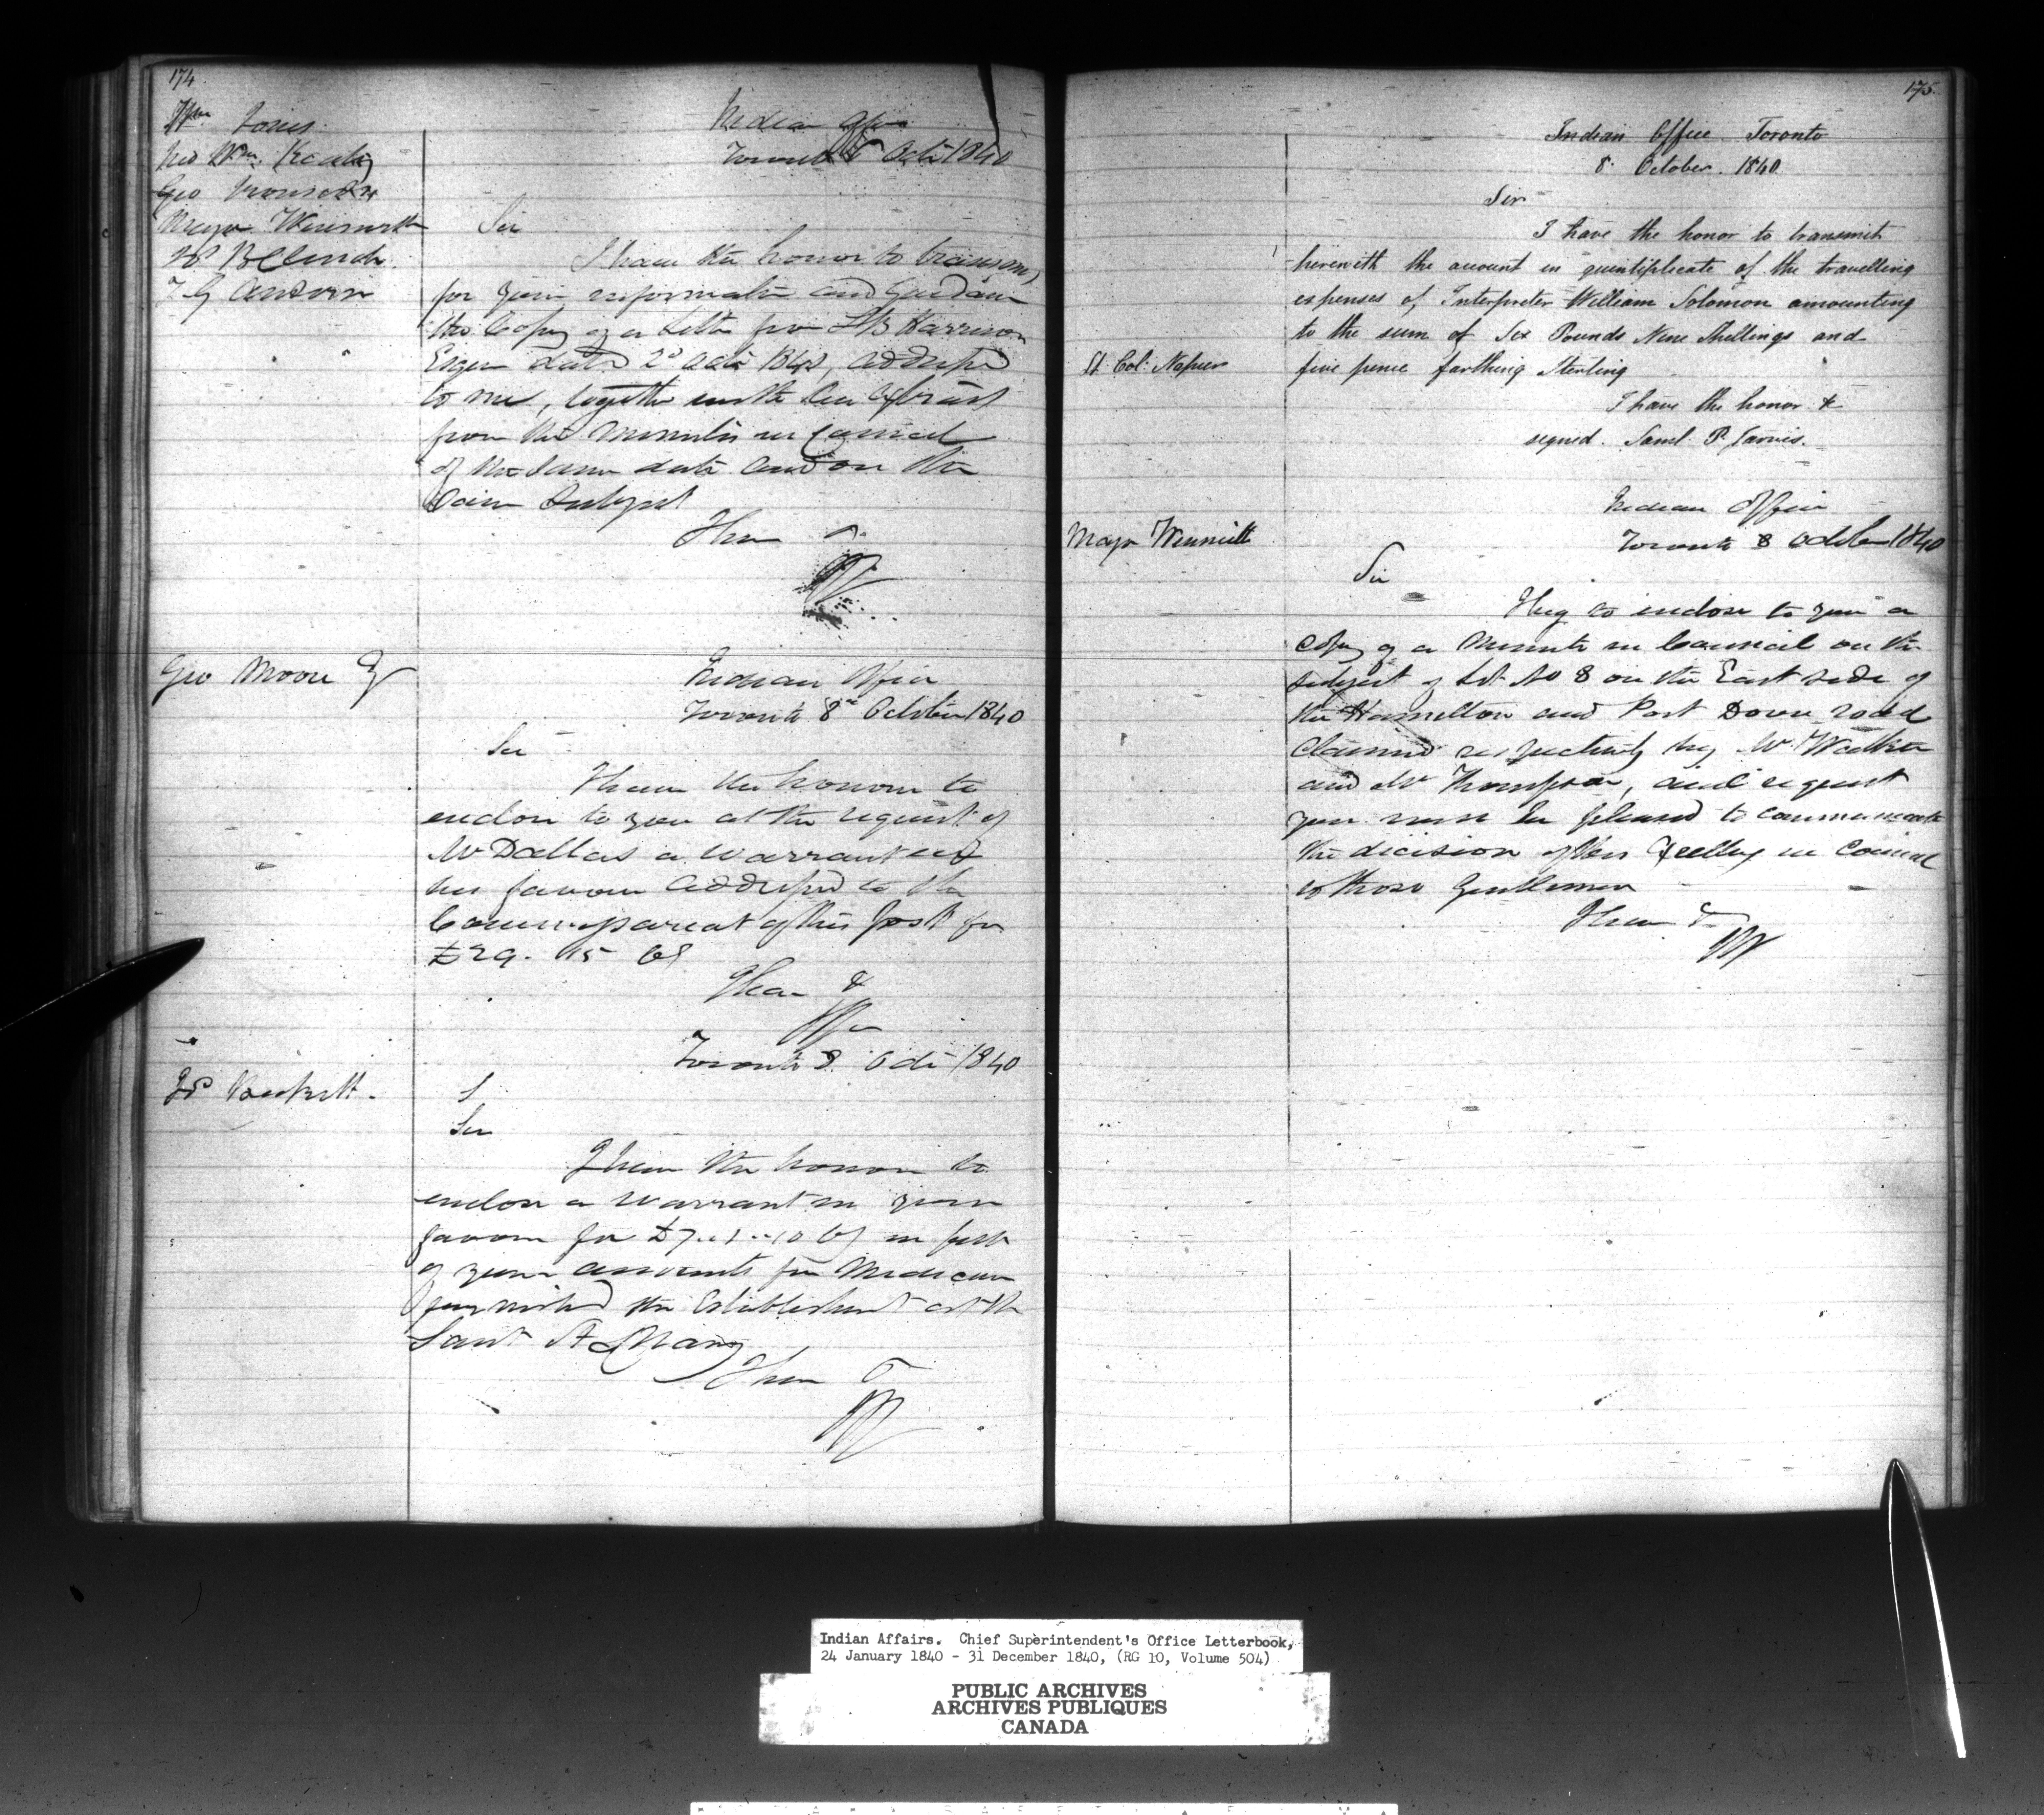 174
Wm Jones
Wm Keating
Geo
Major Winniett
J W B Clench
T G Anderson
Indian Office
Toronto 8 Octr 1840
Sir
I have the honor to transmit
for your information and Guidance
the Copy of a Letter from S B Harrison
Esqr dated 2d Octr 1840, addressed
to me, together with an Extract
from the Minutes in Council
of the same date and on the
Same Subject
I have &
Geo Moore Esq
Indian Office
Toronto 8th October 1840
Sir
I have the honour to
enclose to you at the request of
Mr Dallas a warrant in
his favour addressed to the
Commissariat of this post for
£29. 15
I have &
Toronto 8 Octr 1840
Jos Beckett.
S
Sir
I have the honor to
enclose a warrant in your
favour for £7..1..10 Cy in part
of your accounts for Medicine
furnished the Establishment at the
Sault St Mary
I have &
175.
Indian Office Toronto
8 October. 1840
Sir
I have the honor to transmit
herewith the account in quintiplicate of the travelling
expenses of, Interpreter William Solomon amounting
to the sum of Six Pounds Nine Shillings and
Lt Col: Napier
five pence farthing Sterling
I have the honor &
signed. Saml. P. Jarvis.
Indian Office
Major Winniett
Toronto 8 October 1840
Sir
I beg to enclose to you a
copy of a Minute in Council on the
subject of Lot No 8 on the East side of
the Hamilton and Port Dover road
Claimed respectively by Mr Walker
and Mr Thompson, and request
you will be pleased to communicate
the decision of His Excelly in Council
to those Gentlemen
I have &
Indian Affairs. Chief Superintendent's Office Letterbook,
24 January 1840 - 31 December 1840, (RG 10, Volume 504)
PUBLIC ARCHIVES
ARCHIVES PUBLIQUES
CANADA